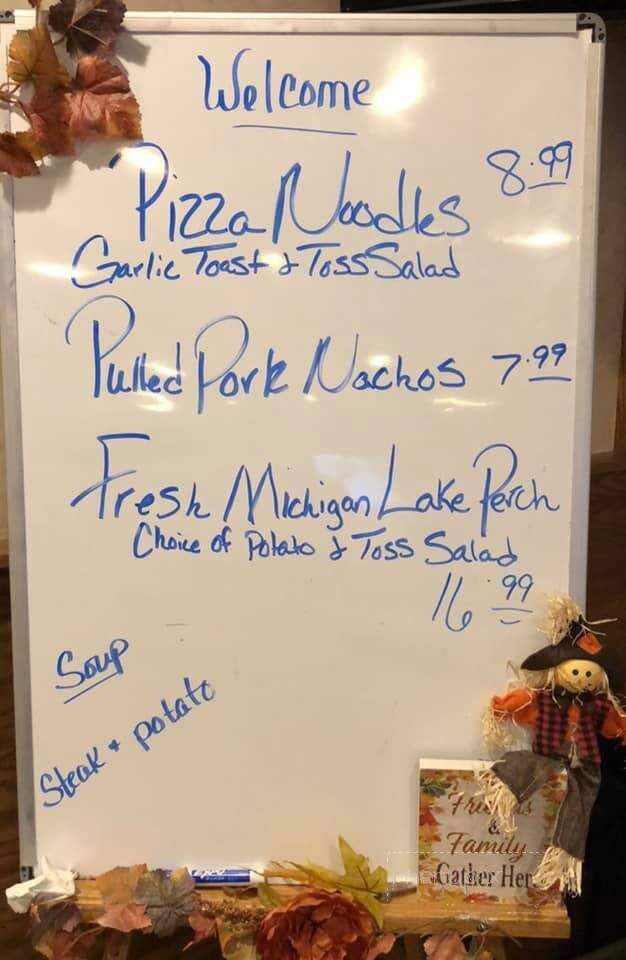 Welcome
Pizza Noodles 8.99
Garlic Toast & Toss Salad
Pulled Pork Nachos 7.99
Fresh Michigan Lake Perch
Choice of Potato & Toss Salad
16.99
Soup
Steak & potato
&
Family
Gather